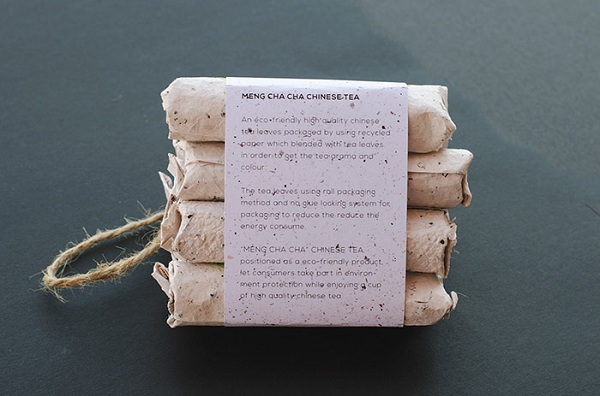 MENG CHA CHA CHINESE TEA
An eco-friendly high quality chinese
tea leaves packaged by using recycled
paper which blended with tea leaves
in order to get the tea aroma and
colour.
The tea leaves using roll packaging
method and no glue looking system for
packaging to reduce the reduce the
energy consume.
"MENG CHA CHA" CHINESE TEA
positioned as a eco-friendly product
let consumers take part in environ-
ment protection while enjoying a cup
of high quality chinese tea